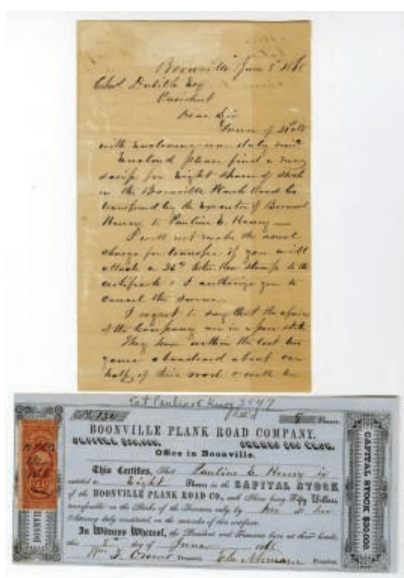 Boonville June 5 1868
Esq
President
Dear Sir
Yours of 30th
with enclosures was duly recd
Enclosed please find a new
scrip for Eight shares of stock
in the Boonville Plank Road Co
transferred by the Executor of
Henry to Pauline E. Henry
I will not make the usual
charge for transfer if you will
attach a 25ct Inter Rev stamp to the
certificate & I authorize you to
cancel the same.
I regret to say that the affairs
of the Company are in a poor state
They have within the last two
years abandoned about one
half of their road & will be
No. 130
8 Shares
BOONVILLE PLANK ROAD COMPANY.
CAPITAL $50,000.
SHARES $50 EACH.
Office in Boonville.
This Certifies, That Pauline E. Henry is
entitled to Eight Shares in the CAPITAL STOCK
of the BOONVILLE PLANK ROAD CO., each Share being Fifty Dollars,
transferable on the Books of the Treasurer only by her or her
Attorney duly constituted on the surrender of this certificate.
In Witness Whereof, the President and Treasurer have set their hands,
this day of June
Treasurer
President
CAPITAL STOCK $50,000.
BOONVILLE